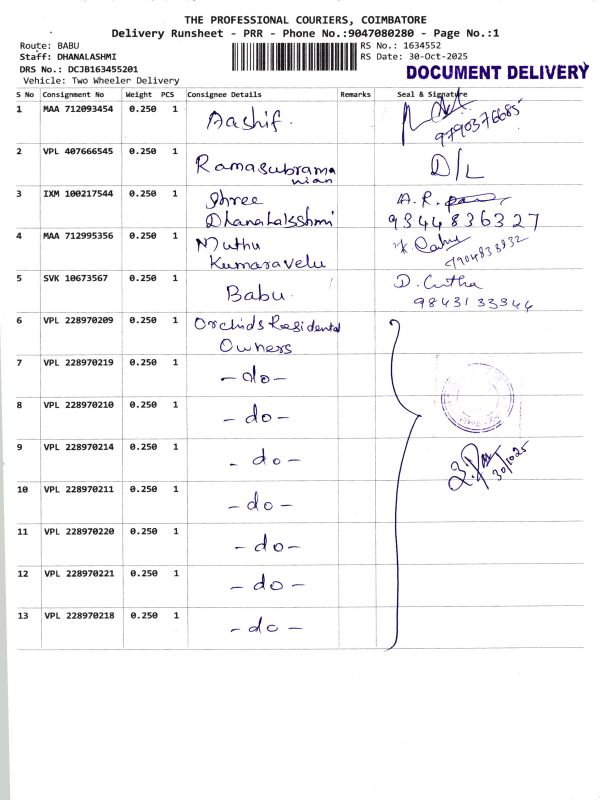 THE PROFESSIONAL COURIERS, COIMBATORE
Delivery Runsheet - PRR - Phone No.:9047080280 - Page No.:1
Route: BABU
Staff: DHANALASHMI
DRS No.: DCJB163455201
Vehicle: Two Wheeler Delivery
RS No.: 1634552
RS Date: 30-Oct-2025
DOCUMENT DELIVERY
S No Consignment No Weight PCS Consignee Details Remarks Seal & Signature
1 MAA 712093454 0.250 1 Aashif.
9790376685
2 VPL 407666545 0.250 1 Ramasubrama D/L
nian
3 IXM 100217544 0.250 1 Shree A.R.
Dhanalakshmi 9344836327
4 MAA 712995356 0.250 1 Muthu
Kumaravelu 7904833832
5 SVK 10673567 0.250 1 Babu. D.
9843133344
6 VPL 228970209 0.250 1 Orchids Residental
Owners
7 VPL 228970219 0.250 1 - do -
8 VPL 228970210 0.250 1 - do -
9 VPL 228970214 0.250 1 - do -
10 VPL 228970211 0.250 1 - do -
30/10/25
11 VPL 228970220 0.250 1 - do -
12 VPL 228970221 0.250 1 - do -
13 VPL 228970218 0.250 1 - do -